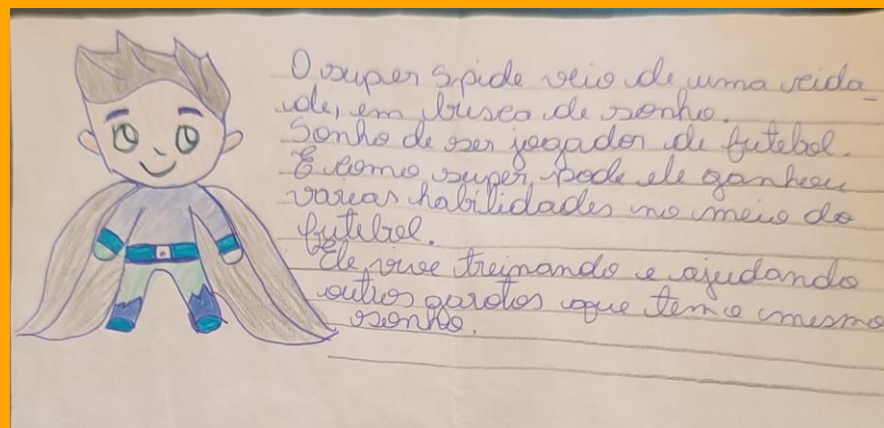 O super Spide veio de uma cida_
de, em busca de sonho.
Sonho de ser jogador de futebol.
E como super pode ele ganhou
varias habilidades no meio do
futebol.
Ele vive treinando e ajudando
outros garotos que tem o mesmo
sonho.